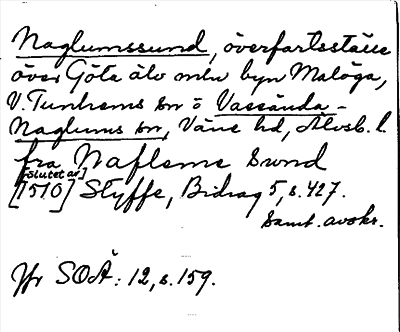 Naglumssund, överfartsställe
över Göta älv mln byn Malöga,
V. Tunhems sn o Vassända-
Naglums sn, Väne hd, Älvsb. l.
fra Naflems Sund
[slutet av]
[1510] Styffe, Bidrag 5, s. 427.
Samt. avskr.
Jfr SOÄ: 12, s. 159.